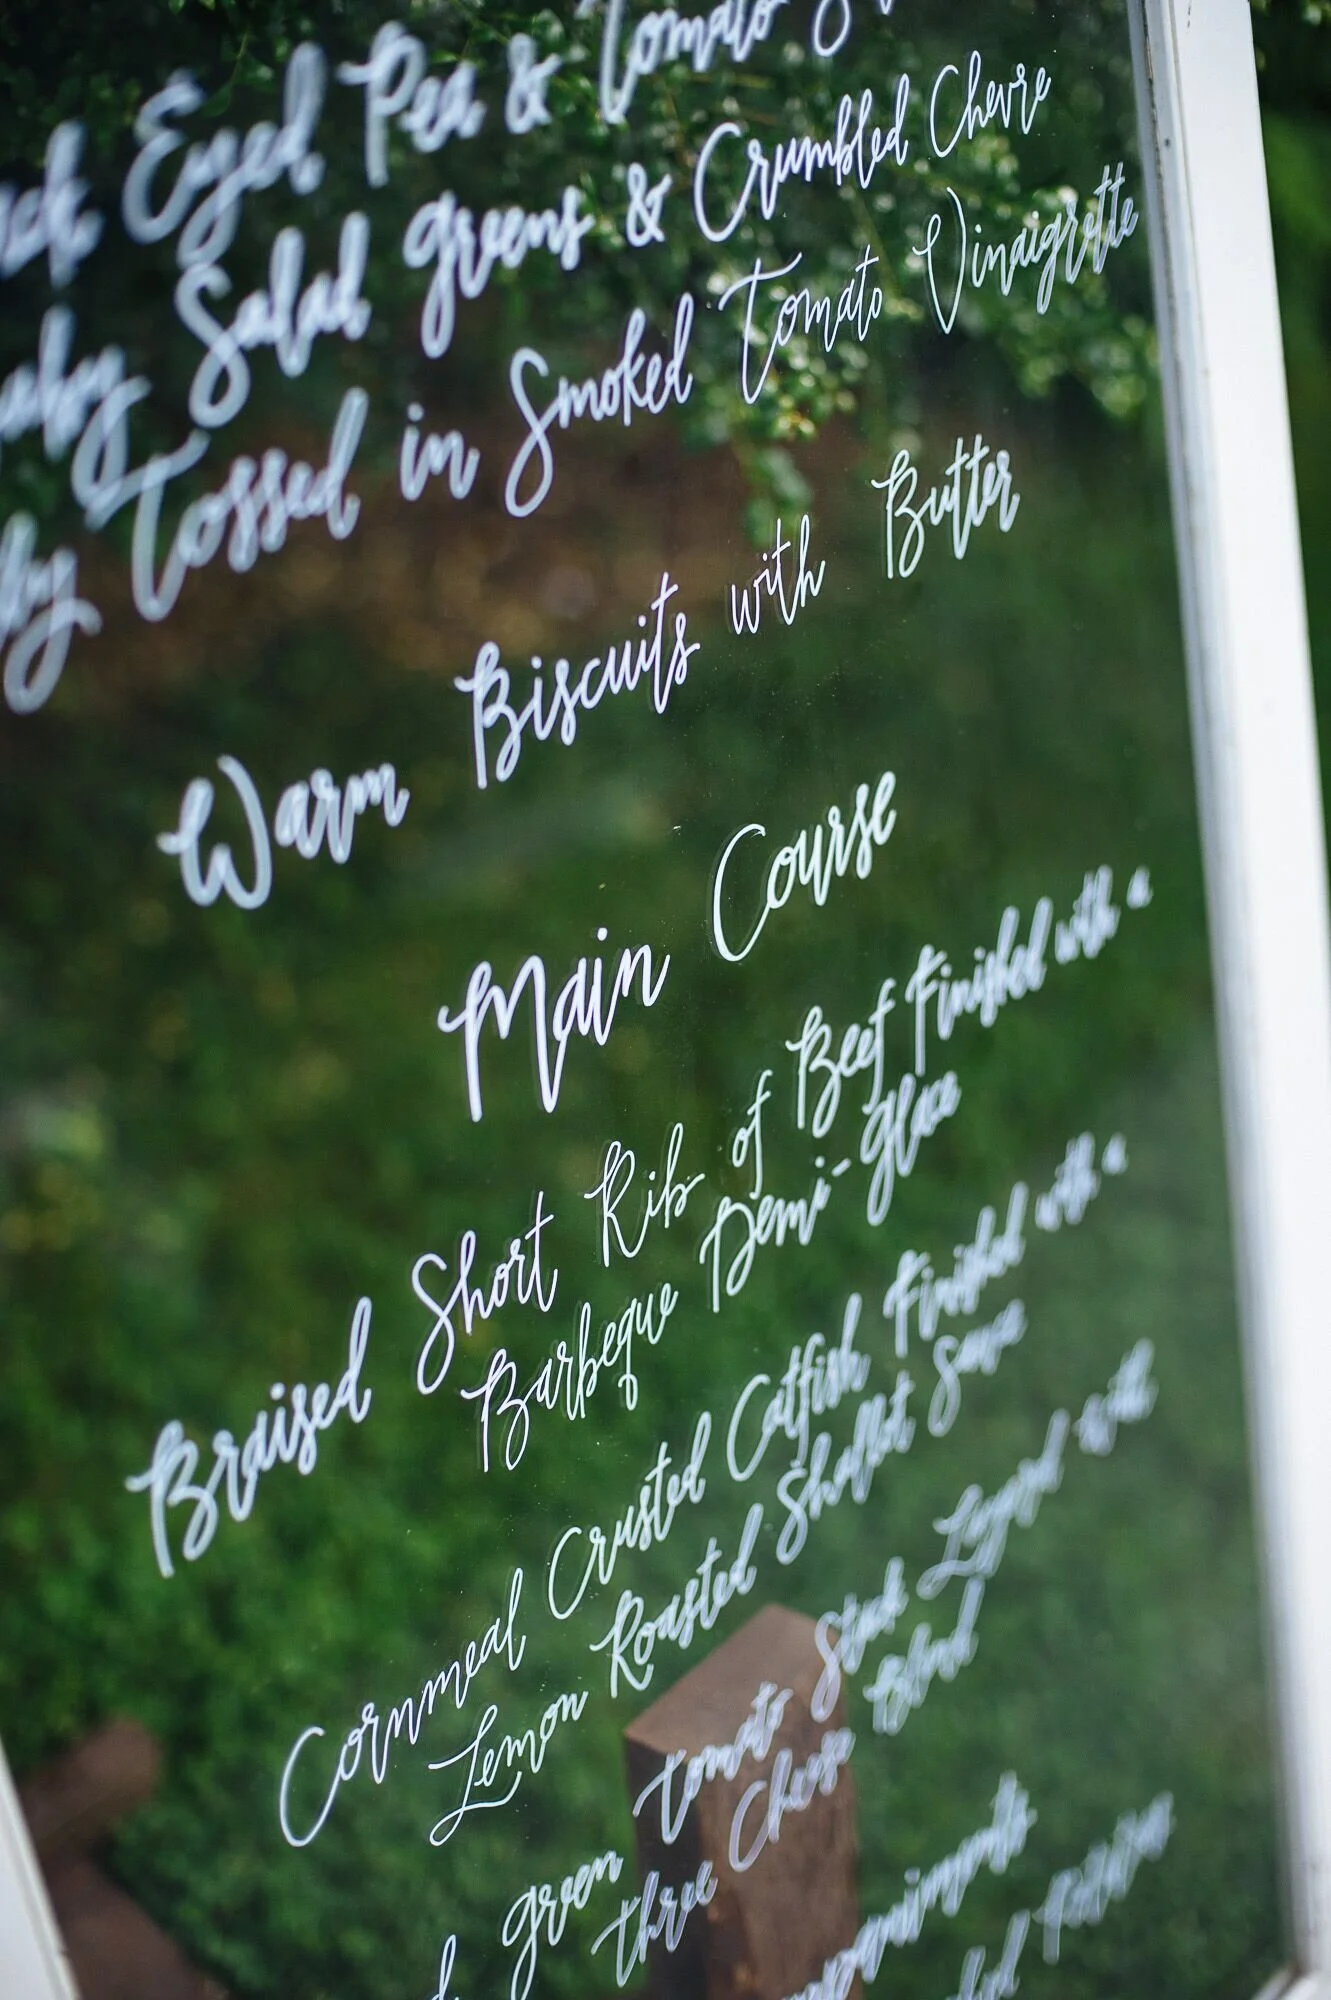 Eyed Pea & Tomato
Salad greens & Crumbled Chevre
Tossed in Smoked Tomato Vinaigrette
Warm Biscuits with Butter
Main Course
Braised Short Rib of Beef Finished with a
Barbeque Demi-Glace
Cornmeal Crusted Catfish Finished with a
Lemon Roasted Shallot Sauce
green tomato Stack Layered with
three Cheese Blend